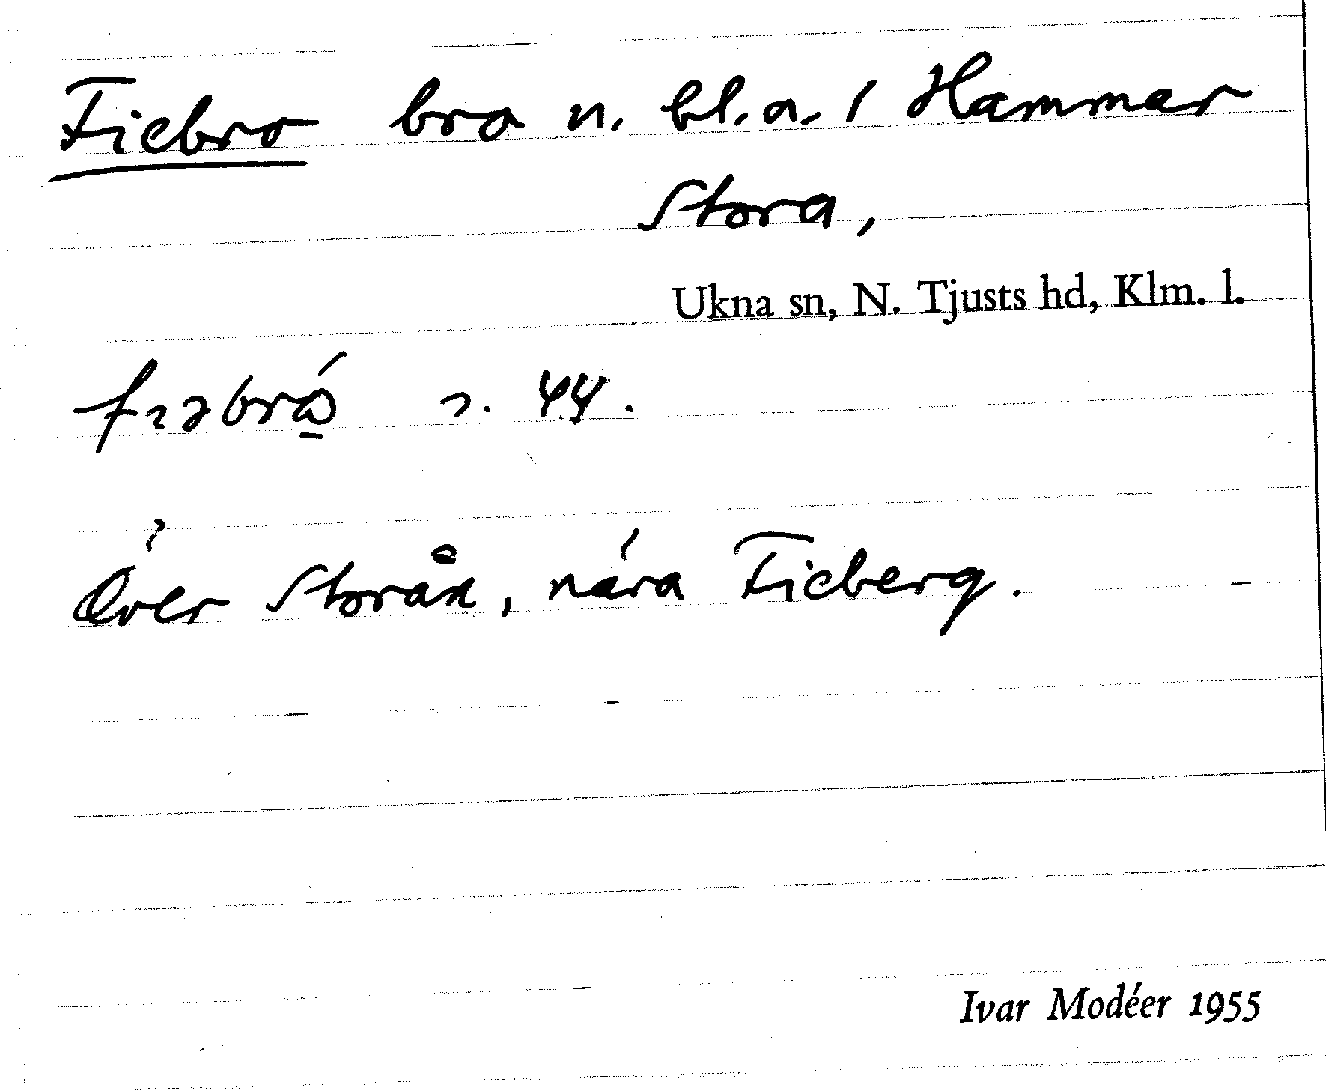 Fiebro bro n. bl.a. i Hammar
Stora,
Ukna sn, N. Tjusts hd, Klm. l.
44.
Över Storån, nära Fieberg.
Ivar Modéer 1955